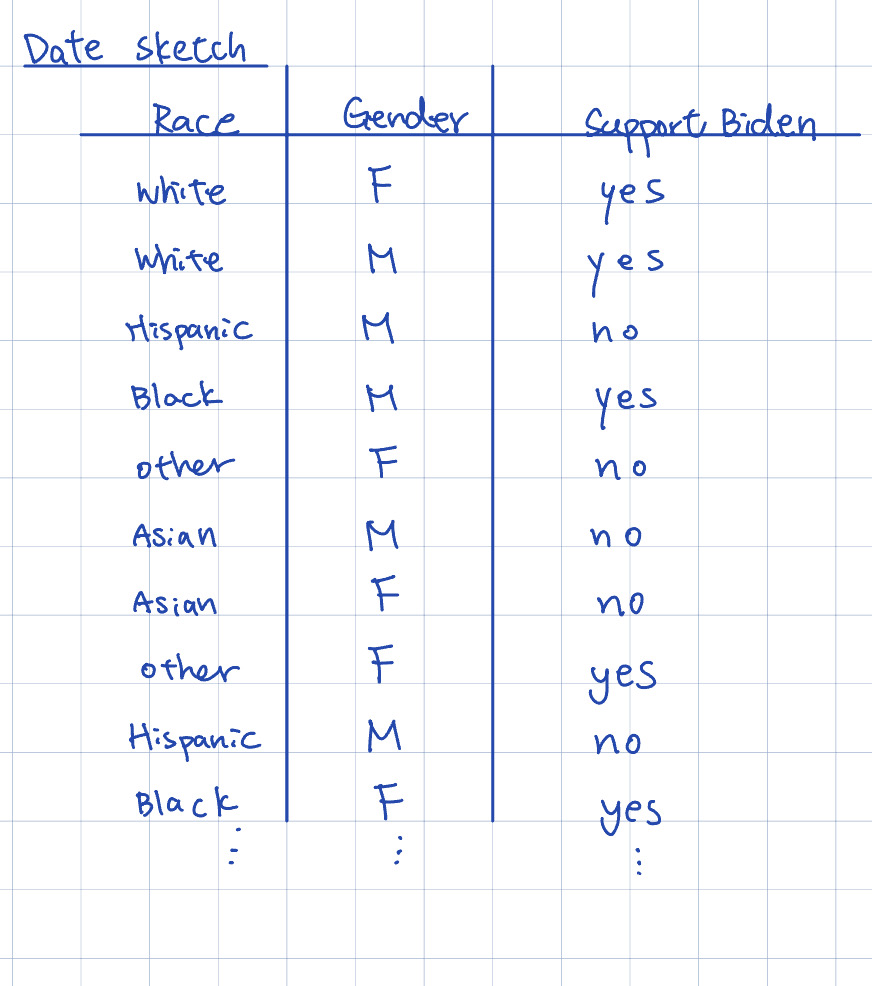 Date sketch
Race Gender Support Biden
White F yes
White M yes
Hispanic M no
Black M yes
other F no
Asian M no
Asian F no
other F yes
Hispanic M no
Black F yes
⋮ ⋮ ⋮